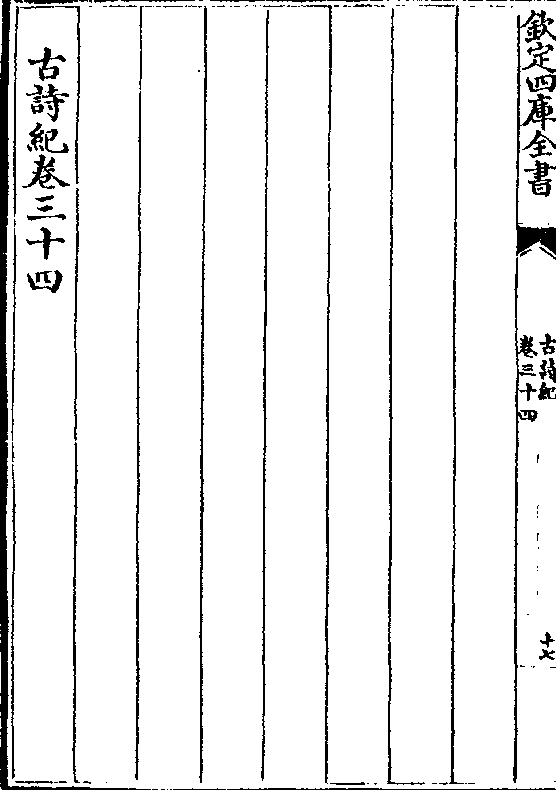 欽定四庫全書
古詩紀
卷三十四
十七
古詩紀卷三十四